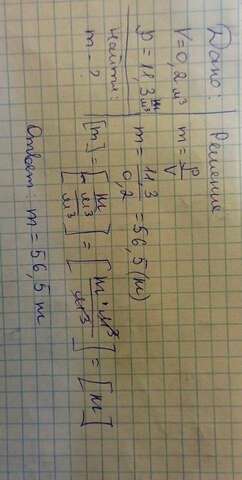 Дано:
V=0,2 м³
ρ=11,3 т/м³
Найти:
m - ?
Решение
m = ρ/V
m = 11,3/0,2 = 56,5 (т)
[m] = [т/м³/м³] = [т·м³/м³] = [т]
Ответ: m = 56,5 т